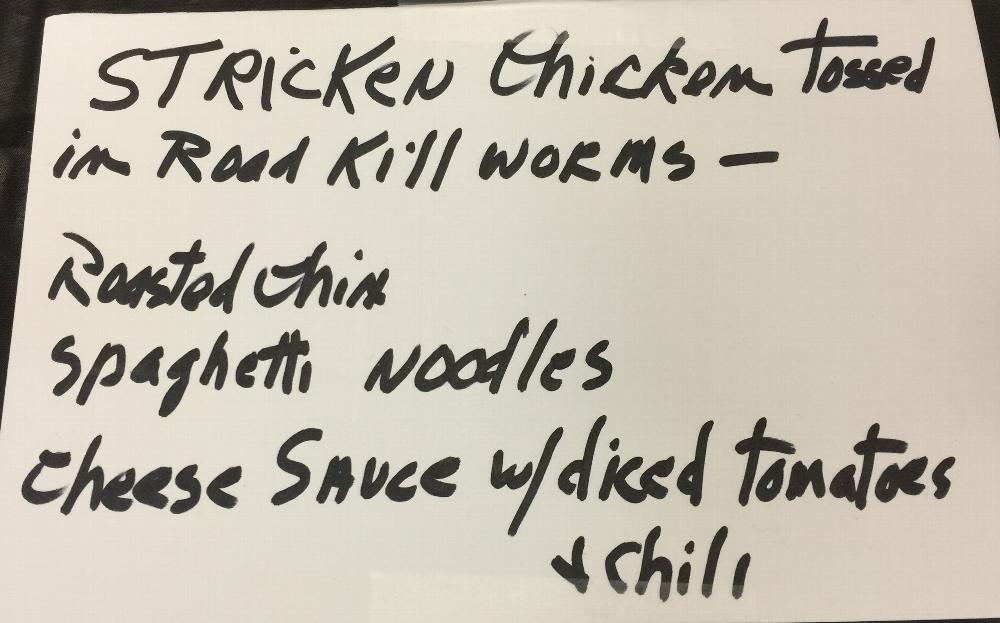 STRICKEN Chicken Tossed
in Road Kill WORMS —
Roasted Chix
Spaghetti Noodles
Cheese Sauce w/diced Tomatoes
& Chili